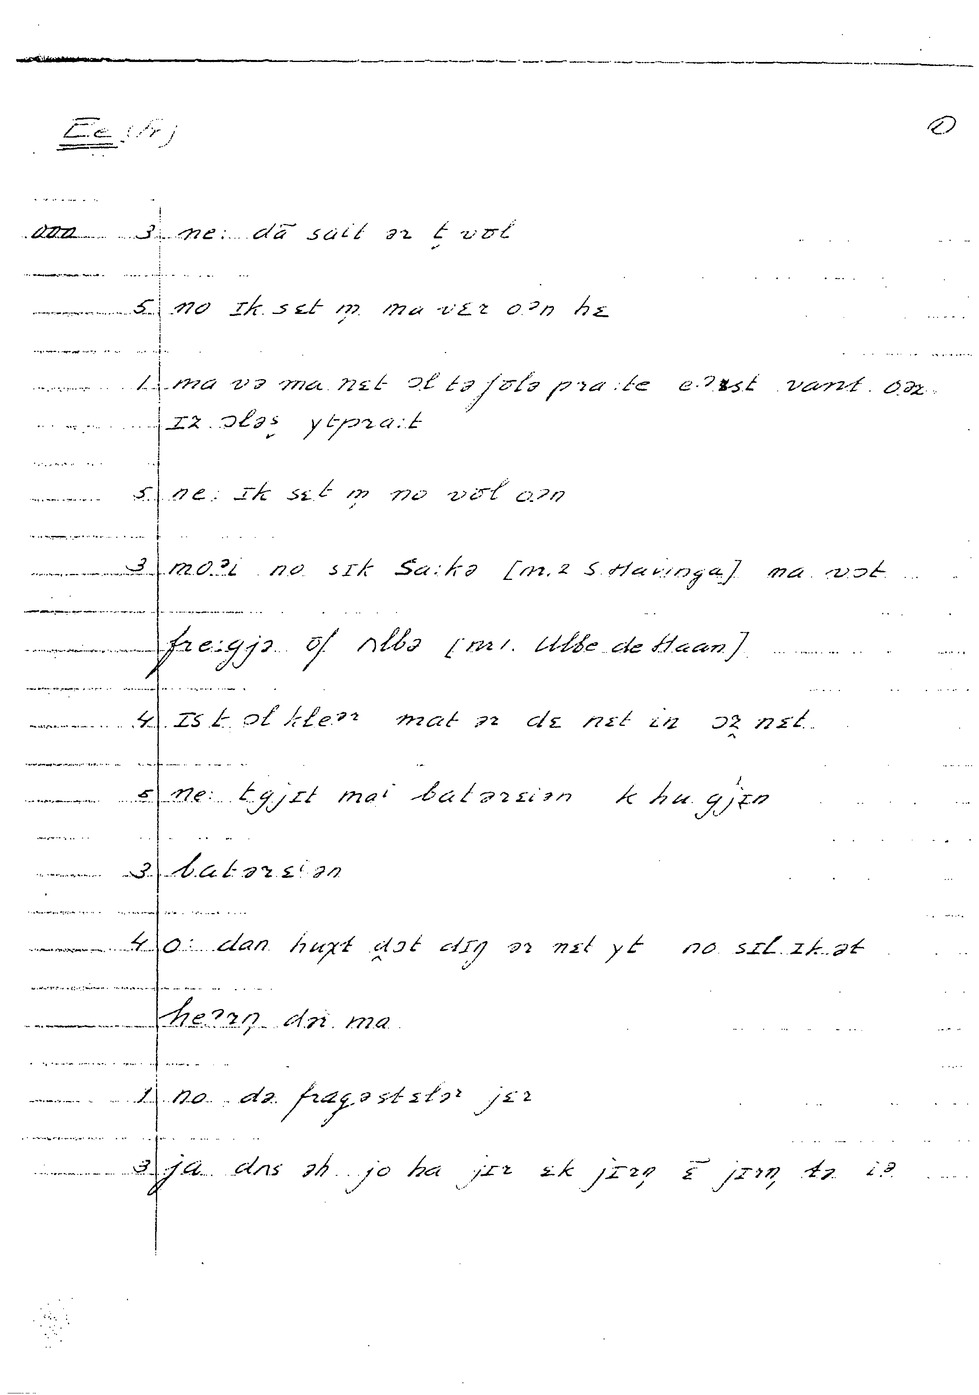 Ee (Fr) ①
000 3 ne: dā sait ər t̬ vōl
5 no ɪk sɛt m̩ ma vɛr o.ən hɛ
1 ma və ma nɛt ɔl tə fōlə pra:tə e.ərst vant o.ər
ɪz ɔləs̬ ytpra:t
5 ne: ɪk sɛt m̩ no vōl o.ən
3 mo.əi no sɪk Sa:kə [m.2 S. Havinga] ma vɔt
fre:gjə ōf ʌlbə [m1. Ulbe de Haan]
4 ɪs t ɔl kleər mat ər dɛ nɛt in ɔr̬ nɛt
5 ne: tgjɪt mai batərɛiən k hu gjɪn
3 batərɛiən
4 o: dan huχt d̬ɔt dɪŋ ər nɛt yt no sɪl ɪk ət
heərn̩ dɑn ma
1 no də fragəstɛlər jɛr
3 ja dɑs əh jo ha jɪr ɛk jɪrn̩ ɛ̄ jɪrn̩ tə iə